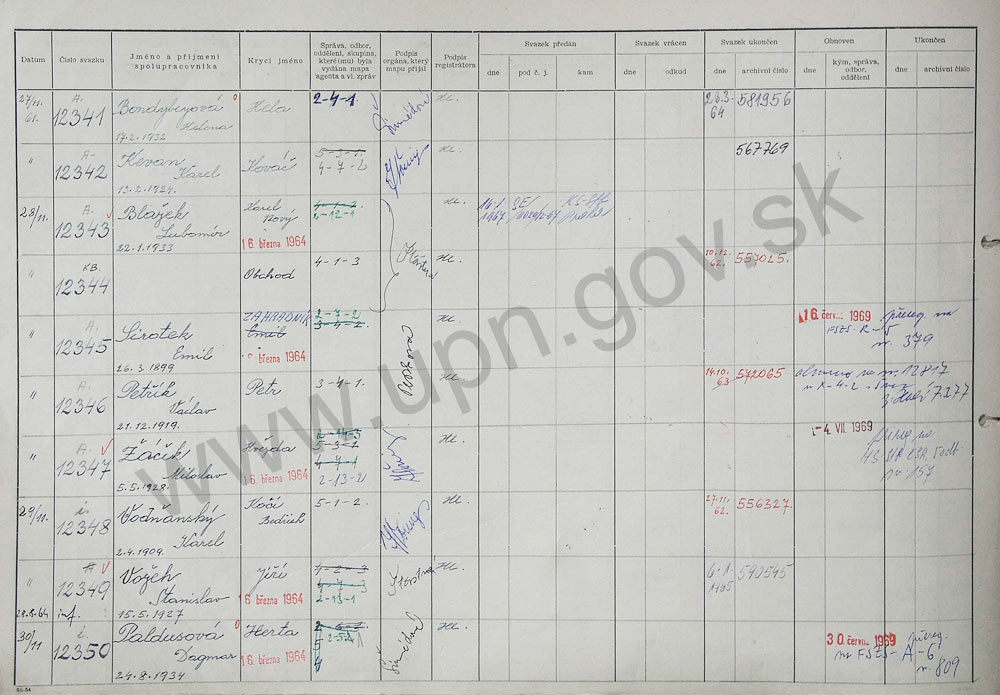 Datum
Číslo svazku
Jméno a příjmení
spolupracovníka
Krycí jméno
Správa, odbor,
oddělení, skupina,
které(mu) byla
vydána mapa
agenta a vl. zpráv
Podpis
orgána, který
mapu přijal
Podpis
registrátora
Svazek předán
dne
pod č. j.
kam
Svazek vrácen
dne
odkud
Svazek ukončen
dne
archivní číslo
Obnoven
dne
kým, správa,
odbor,
oddělení
Ukončen
dne
archivní číslo
27/11.
61.
A.
12341
Bondybeyová
Helena
17.2.1932
Hela
2-4-1.
26.3.
64
581956
"
A-
12342
Kevan
Karel
13.2.1924.
Kováč
5-3-1.
4-7-2
567769
28/11.
A.
12343
Blažek
Lubomír
22.1.1933
Karel
Nový
16 března 1964
2-12-1
14.1.
1967
"
KB.
12344
Obchod
4-1-3
10.12.
62.
557025.
"
A.
12345
Sirotek
Emil
26.3.1899
ZAHRADNÍK
Emil
března 1964
2-7-2
3-4-2.
16. červ. 1969
FSZS-R-5
379
"
A.
12346
Petřík
Václav
21.12.1919.
Petr
3-4-1.
14.10.
63
572065
12817
"
A.
12347
Žáčik
Miloslav
5.5.1928.
Hvězda
16 března 1964
5-3-1
4-7-1
2-13-2
-4. VII. 1969
29/11.
i.
12348
Vodňanský
Karel
2.4.1909.
Kočí
Bedřich
5-1-2.
27.11.
62.
556327.
"
12349
Vožeh
Stanislav
15.5.1927
Jiří
6 března 1964
4-2-3
4-7-3
2-13-1
6.1.
1965
590545
28.8.64
inf.
30/11
i.
12350
Paldusová
Dagmar
24.8.1934
Herta
16 března 1964
30. červ. 1969
FSZS-A-6
809
www.upn.gov.sk